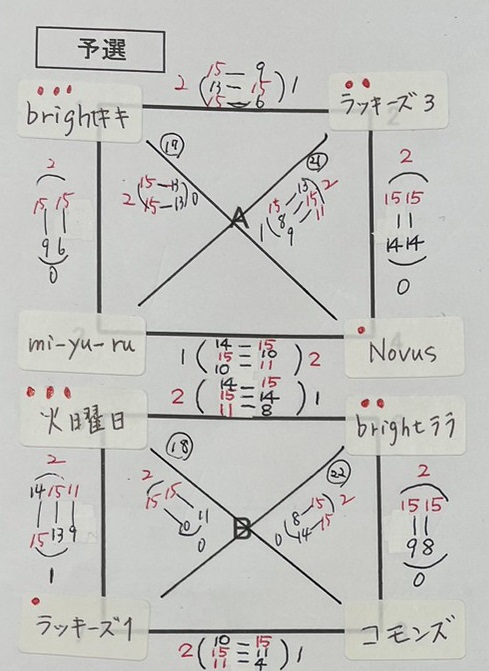 予選
brightキキ
2 ( 15 — 9 ) 1
13 — 15
15 — 6
ラッキーズ3
⑲
㉑
2
15 15
9 6
0
2 ( 15 — 13 ) 0
15 — 13
A
15 — 13 2
8 — 15
9 — 11
1
2
15 15
14 14
0
mi-yu-ru
1 ( 14 — 15 ) 2
15 — 10
10 — 11
Novus
火曜日
2 ( 14 — 15 ) 1
15 — 14
11 — 8
brightララ
⑱
㉒
2
14 15 11
15 13 9
1
2
15 15
11
0
B
0 ( 8 — 15 ) 2
14 — 15
2
15 15
9 8
0
ラッキーズ1
2 ( 10 — 15 ) 1
15 — 11
11 — 4
コモンズ